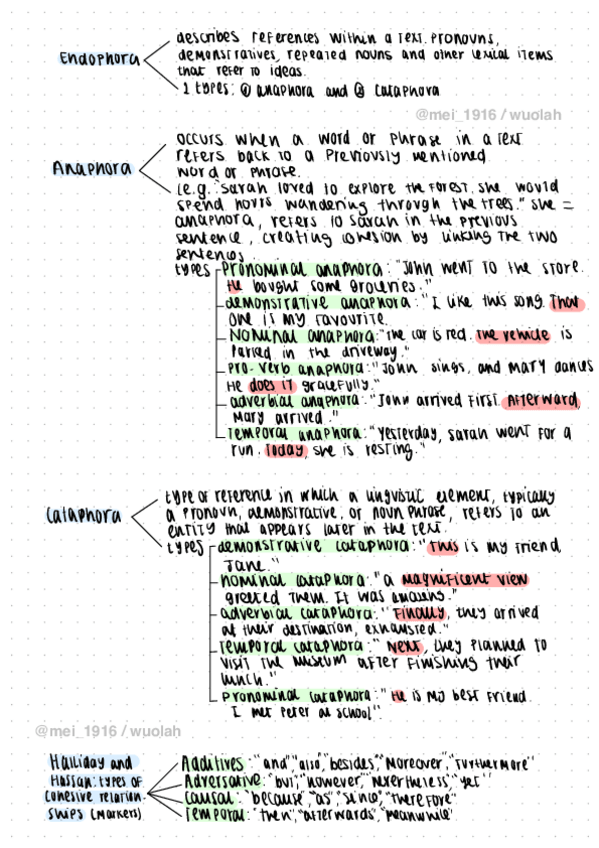 Endophora
describes references within a text. Pronouns,
demonstratives, repeated nouns and other lexical items
that refer to ideas.
2 types: ① anaphora and ② cataphora
@mei_1916 / wuolah
Anaphora
occurs when a word or phrase in a text
refers back to a previously mentioned
word or phrase.
(e.g. "Sarah loved to explore the forest. She would
spend hours wandering through the trees." She =
anaphora, refers to Sarah in the previous
sentence, creating cohesion by linking the two
sentences.
types
pronominal anaphora: "John went to the store.
He bought some groceries."
demonstrative anaphora: "I like this song. That
one is my favourite.
Nominal anaphora: "The car is red. The vehicle is
parked in the driveway."
pro-verb anaphora: "John sings, and Mary dances
He does it gracefully."
adverbial anaphora: "John arrived first. Afterward,
Mary arrived."
Temporal anaphora: "Yesterday, Sarah went for a
run. Today, she is resting."
Cataphora
type of reference in which a linguistic element, typically
a pronoun, demonstrative, or noun phrase, refers to an
entity that appears later in the text.
types
demonstrative cataphora: "This is my friend,
Jane."
nominal cataphora: "a magnificent view
greeted them. It was amazing."
adverbial cataphora: "Finally, they arrived
at their destination, exhausted."
Temporal cataphora: "Next, they planned to
visit the museum after finishing their
lunch."
pronominal cataphora: "He is my best friend.
I met Peter at school".
@mei_1916 / wuolah
Halliday and
Hassan: types of
cohesive relation-
ships (markers)
Additives: "and", "also", "besides", "Moreover", "Furthermore"
Adversative: "but", "however", "nevertheless", "yet"
Causal: "because", "as", "since", "therefore"
Temporal: "then", "afterwards", "meanwhile"